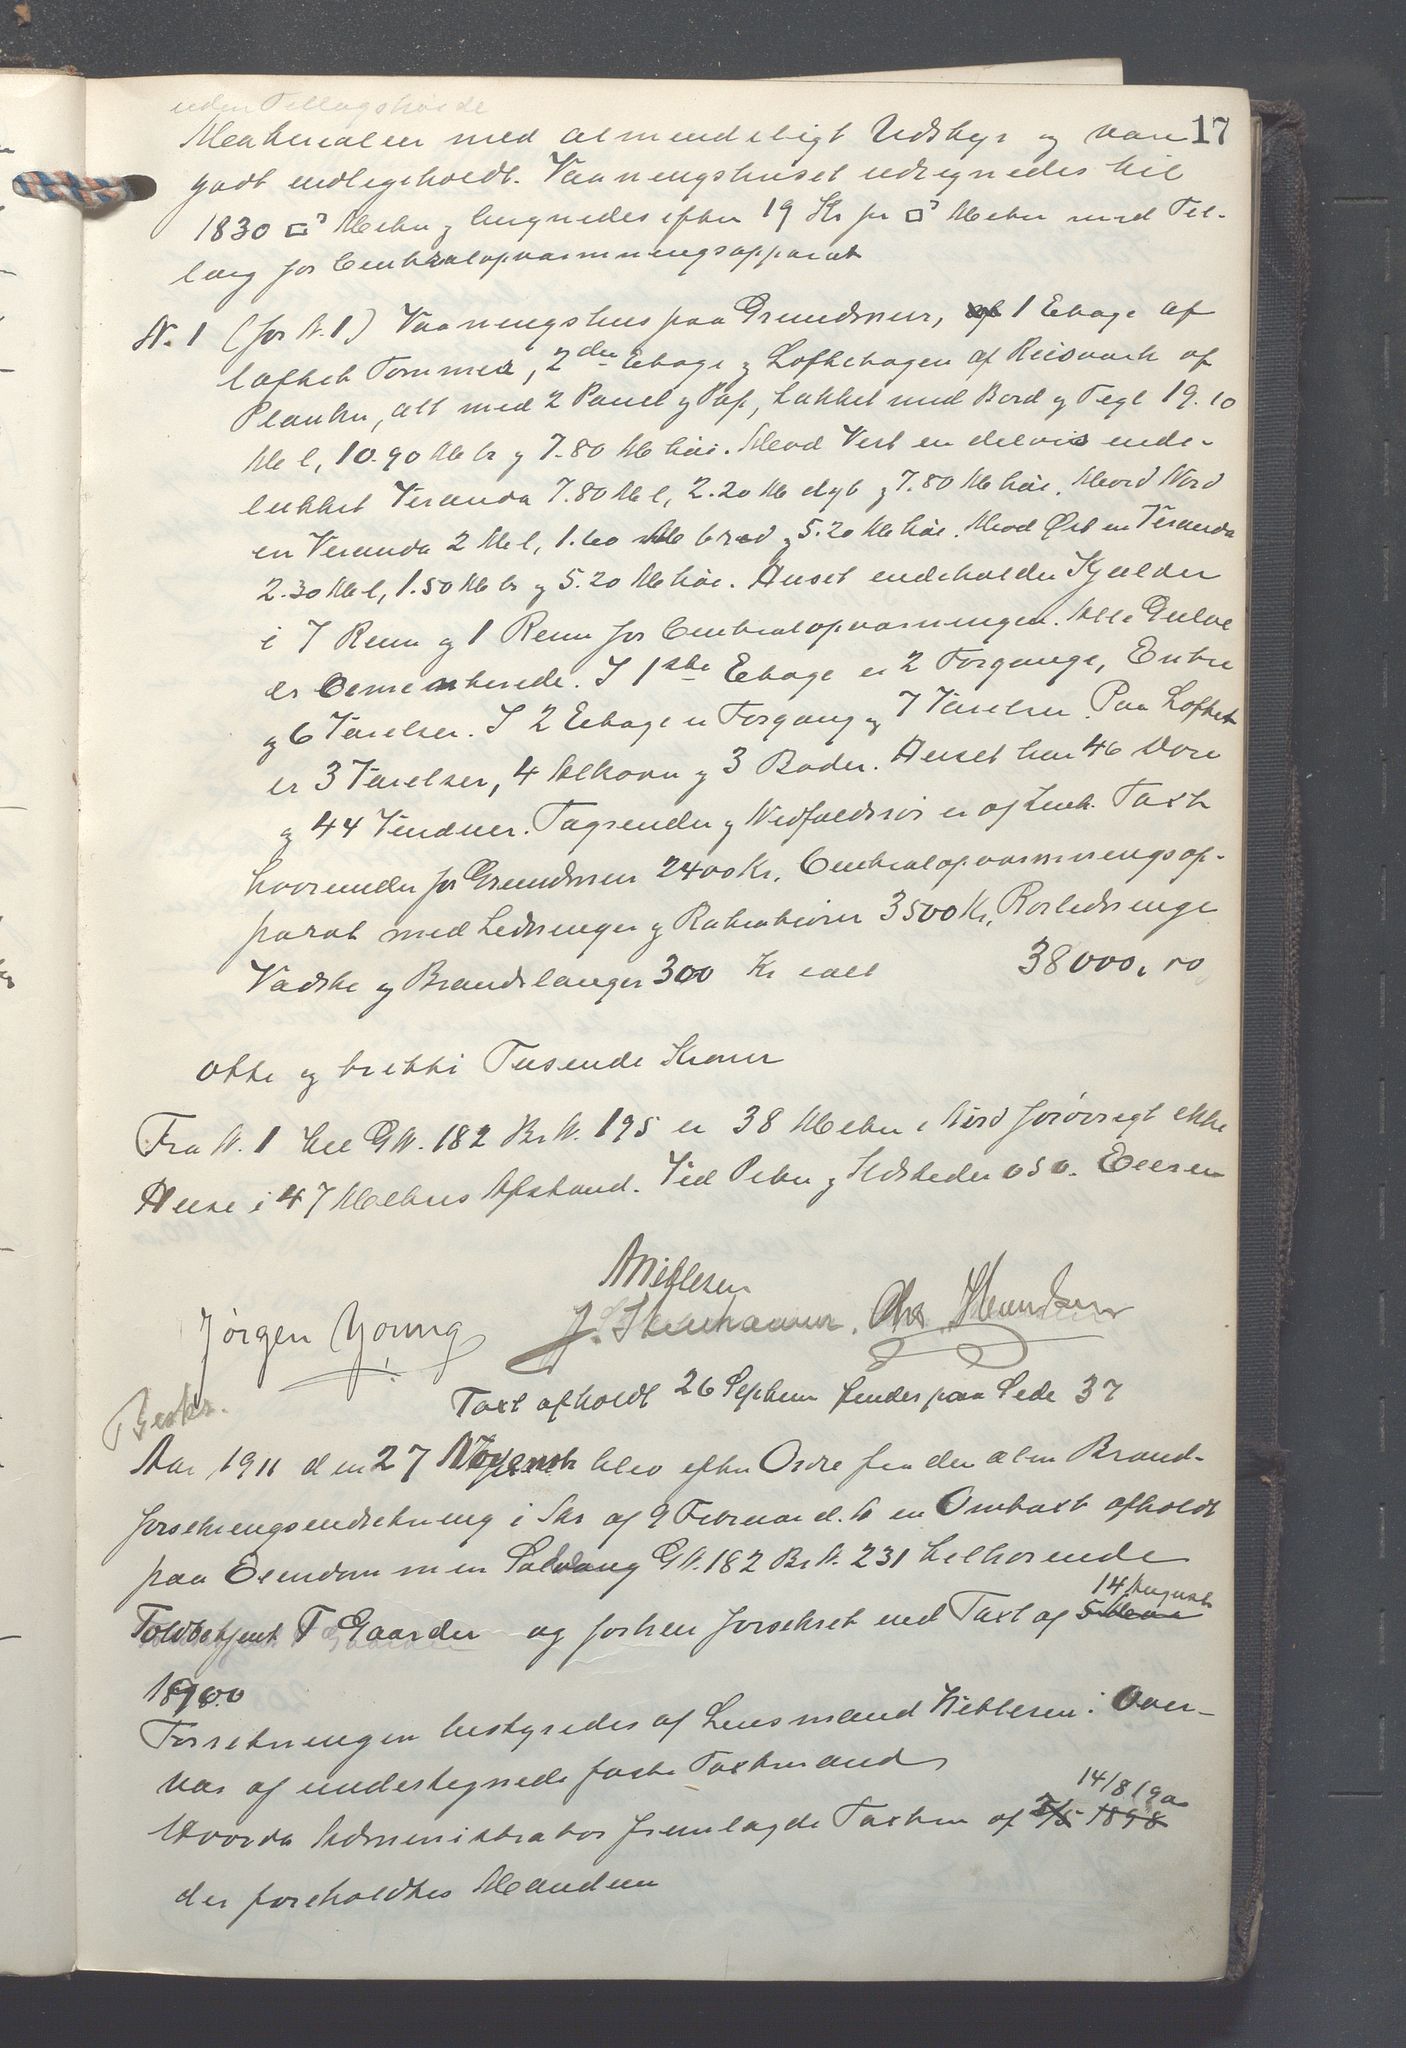 uden Tillagshøide
17
Materialer med almindeligt Udstyr og var
godt vedligeholdt. Vaaningshuset udregnedes til
1830 □³ Meter og beregnedes efter 19 Kr pr □³ Meter med Til-
læg for Centralopvarmningsapparat
N. 1 (før N. 1) Vaaningshus paa Grundmur, 1 Etage af
laftet Tømmer, 2den Etage og Loftetagen af Reisværk af
Planker, alt med 2 Panel og Pap, takket med Bord og Tegl 19.10
M l, 10.90 M br og 7.80 M høi. Mod Vest en delvis inde-
lukket Veranda 7.80 M l, 2.20 M dyb og 7.80 M høi. Mod Nord
en Veranda 2 M l, 1.60 M bred og 5.20 M høi. Mod Øst en Veranda
2.30 M l, 1.50 M br og 5.20 M høi. Huset indeholder Kjælder
i 7 Rum og 1 Rum for Centralopvarmningen. Alle Gulve
er Cementerede. I 1ste Etage er 2 Forgange, Entre
og 6 Værelser. I 2 Etage er Forgang og 7 Værelser. Paa Loftet
er 3 Værelser, 4 Alkover og 3 Boder. Huset har 46 Døre
og 44 Vinduer. Tagrender og Nedfaldsrør er af Zink. Taxt
hvorunder for Grundmur 2400 Kr, Centralopvarmningsap-
parat med Ledninger og Radiatorer 3500 Kr, Rørledninge
Vadske og Brandslanger 300 Kr ialt 38000,00
otte og tretti Tusende Kroner
Fra N. 1 til GN. 182 BrN. 195 er 38 Meter i Nord forøvrigt ikke
Huse i 47 Meters Afstand. Ved Piber og Ildsteder o s v. Eieren
Nielsen
Jørgen Young
Taxt afholdt 26 Septem findes paa Side 37
Beskr.
Aar 1911 den 27 blev efter Ordre fra den alm Brand-
forsikringsindretning i Skr af 9 Februar d. A en Omtaxt afholdt
paa Eiendommen Solvang GN. 182 BrN. 231 tilhørende
14 August
Toldbetjent T Gaarder og forhen forsikret ved Taxt af 5 Mai
1900
Forretningen bestyredes af Lensmand Nielsen i Over-
vær af undertegnede faste Taxtmænd
14/8 1900
Hvorda Administrator fremlagde Taxten af 5/5 1898
der foreholdtes Mændene